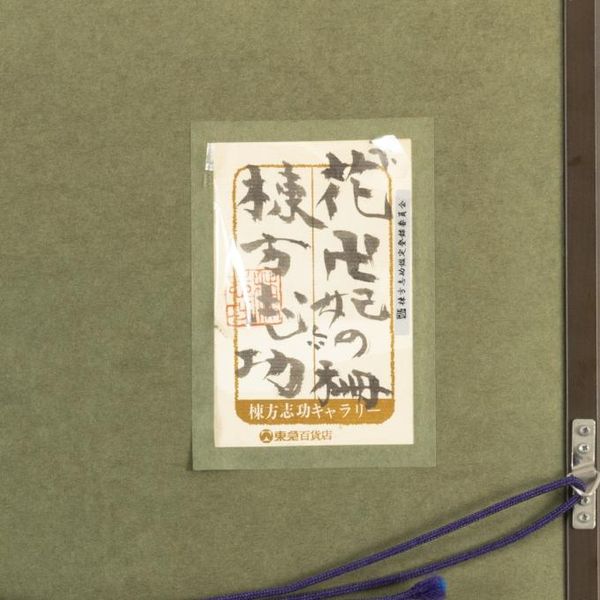 花卍妃の柵
棟方志功
棟方志功鑑定登録委員会
棟方志功ギャラリー
東急百貨店